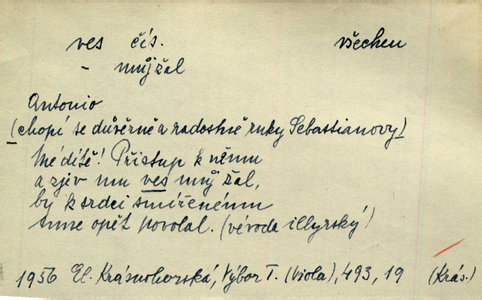 ves čís. všechen
- můj žal
Antonio
(chopí se důvěrně a radostně ruky Sebastianovy)
Mé dítě! Přistup k němu
a zjev mu ves můj žal,
by k srdci smířenému
mne opět povolal. (vévoda illyrský)
1956 El. Krásnohorská, Výbor I. (Viola), 493, 19 (Krás.)